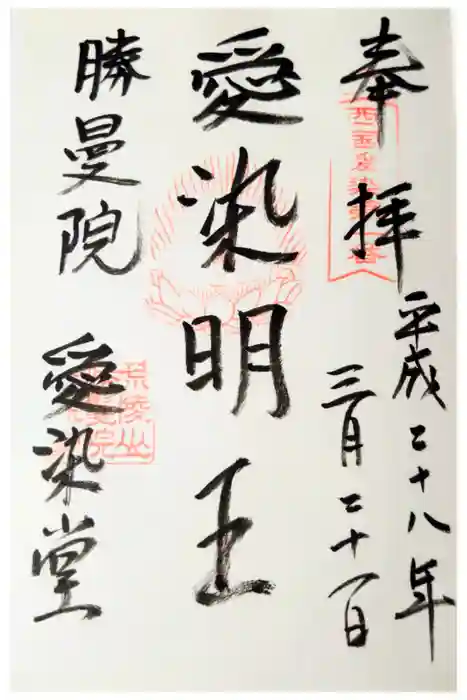 奉拝
平成二十八年
三月二十一日
愛染明王
勝曼院 愛染堂
荒陵山